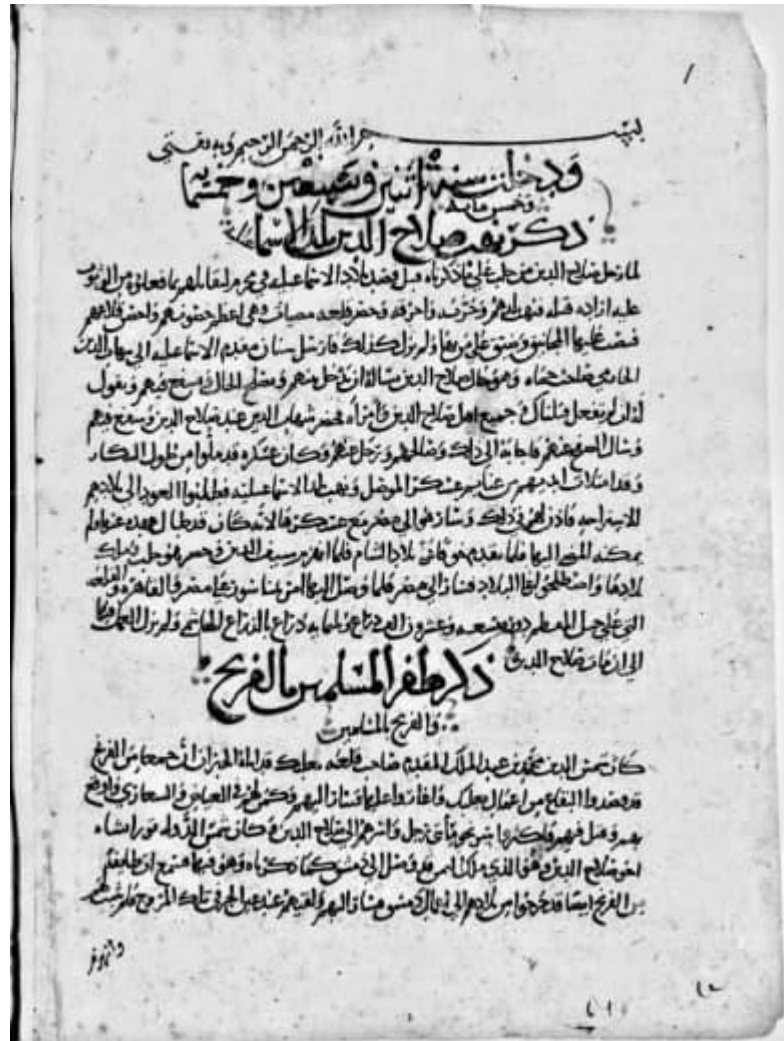 بسم الله الرحمن الرحيم وبه ثقتي
ودخلت سنة اثنتين وسبعين وخمسمايه
وخمس مايه
ذكر نهب صلاح الدين بلد الاسماعيلية
لما رحل صلاح الدين من حلب على ما ذكرناه قبل قصد بلاد الاسماعيليه في محرم ليقاتلهم بما فعلوه من الوثوب
عليه وارادة قتله فنهب بلدهم وخربه واحرقه وحصر قلعه مصياف وهي اعظم حصونهم واحصن قلاعهم
فنصب عليها المجانيق وضيق على من بها ولم يزل كذلك فارسل سنان مقدم الاسماعيليه الى شهاب الدين
الحارمي صاحب حماه وهو خال صلاح الدين يساله ان يدخل بينهم ويصلح الحال ويشفع فيهم ويقول
له ان لم تفعل قتلناك وجميع اهل صلاح الدين وامراه فحضر شهاب الدين عند صلاح الدين وشفع فيهم
وسال الصفح عنهم فاجابه الى ذلك وصالحهم ورحل عنهم وكان عسكره قد ملوا من طول البيكار
وقد امتلات ايديهم من غنايم عسكر الموصل ونهب بلد الاسماعيليه فطلبوا العود الى بلادهم
للاستراحه فاذن لهم في ذلك وسار هو الى مصر مع عسكرها لانه كان قد طال عهده عنها ولم
يمكنه المضي اليها فيما تقدم خوفا على بلاد الشام فلما انهزم سيف الدين وحصر هو حلب وملك
بلادها واصطلحوا امن على البلاد فسار الى مصر فلما وصل اليها امر ببنا سور على مصر والقاهره والقلعه
التي على جبل المقطم دوره تسعه وعشرون الف ذراع وثلثمايه ذراع بالذراع الهاشمي ولم يزل العمل فيه
الى ان مات صلاح الدين
ذكر ظفر المسلمين بالفرنج
والفرنج بالمسلمين
كان شمس الدين محمد بن عبد الملك المقدم صاحب قلعه بعلبك قد اتاه الخبر ان جمعا من الفرنج
قد قصدوا البقاع من اعمال بعلبك واغاروا عليها فسار اليهم وكمن لهم في الغياض والشعاري واوقع
بهم وقتل فيهم واكثر واسر نحو مايتي رجل واسرهم الى صلاح الدين وكان شمس الدوله تورانشاه
اخو صلاح الدين وهو الذي ملك اليمن قد وصل الى دمشق كما ذكرناه وهو فيها فسمع ان طايفه
من الفرنج ايضا قد خرجوا من بلادهم الى اعمال دمشق فسار اليهم ولقيهم عند عين الجر في تلك المروج فلم يثبت لهم
وانهزم